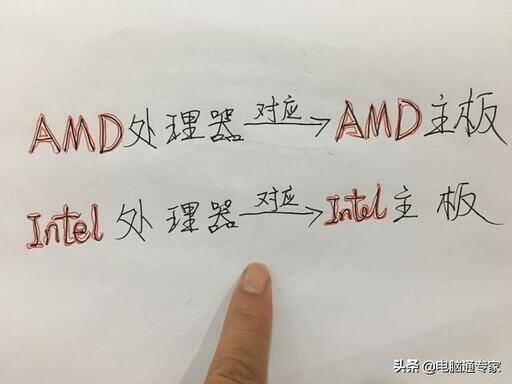 AMD处理器 对应→ AMD主板
Intel处理器 对应→ Intel主板
头条 @电脑通专家